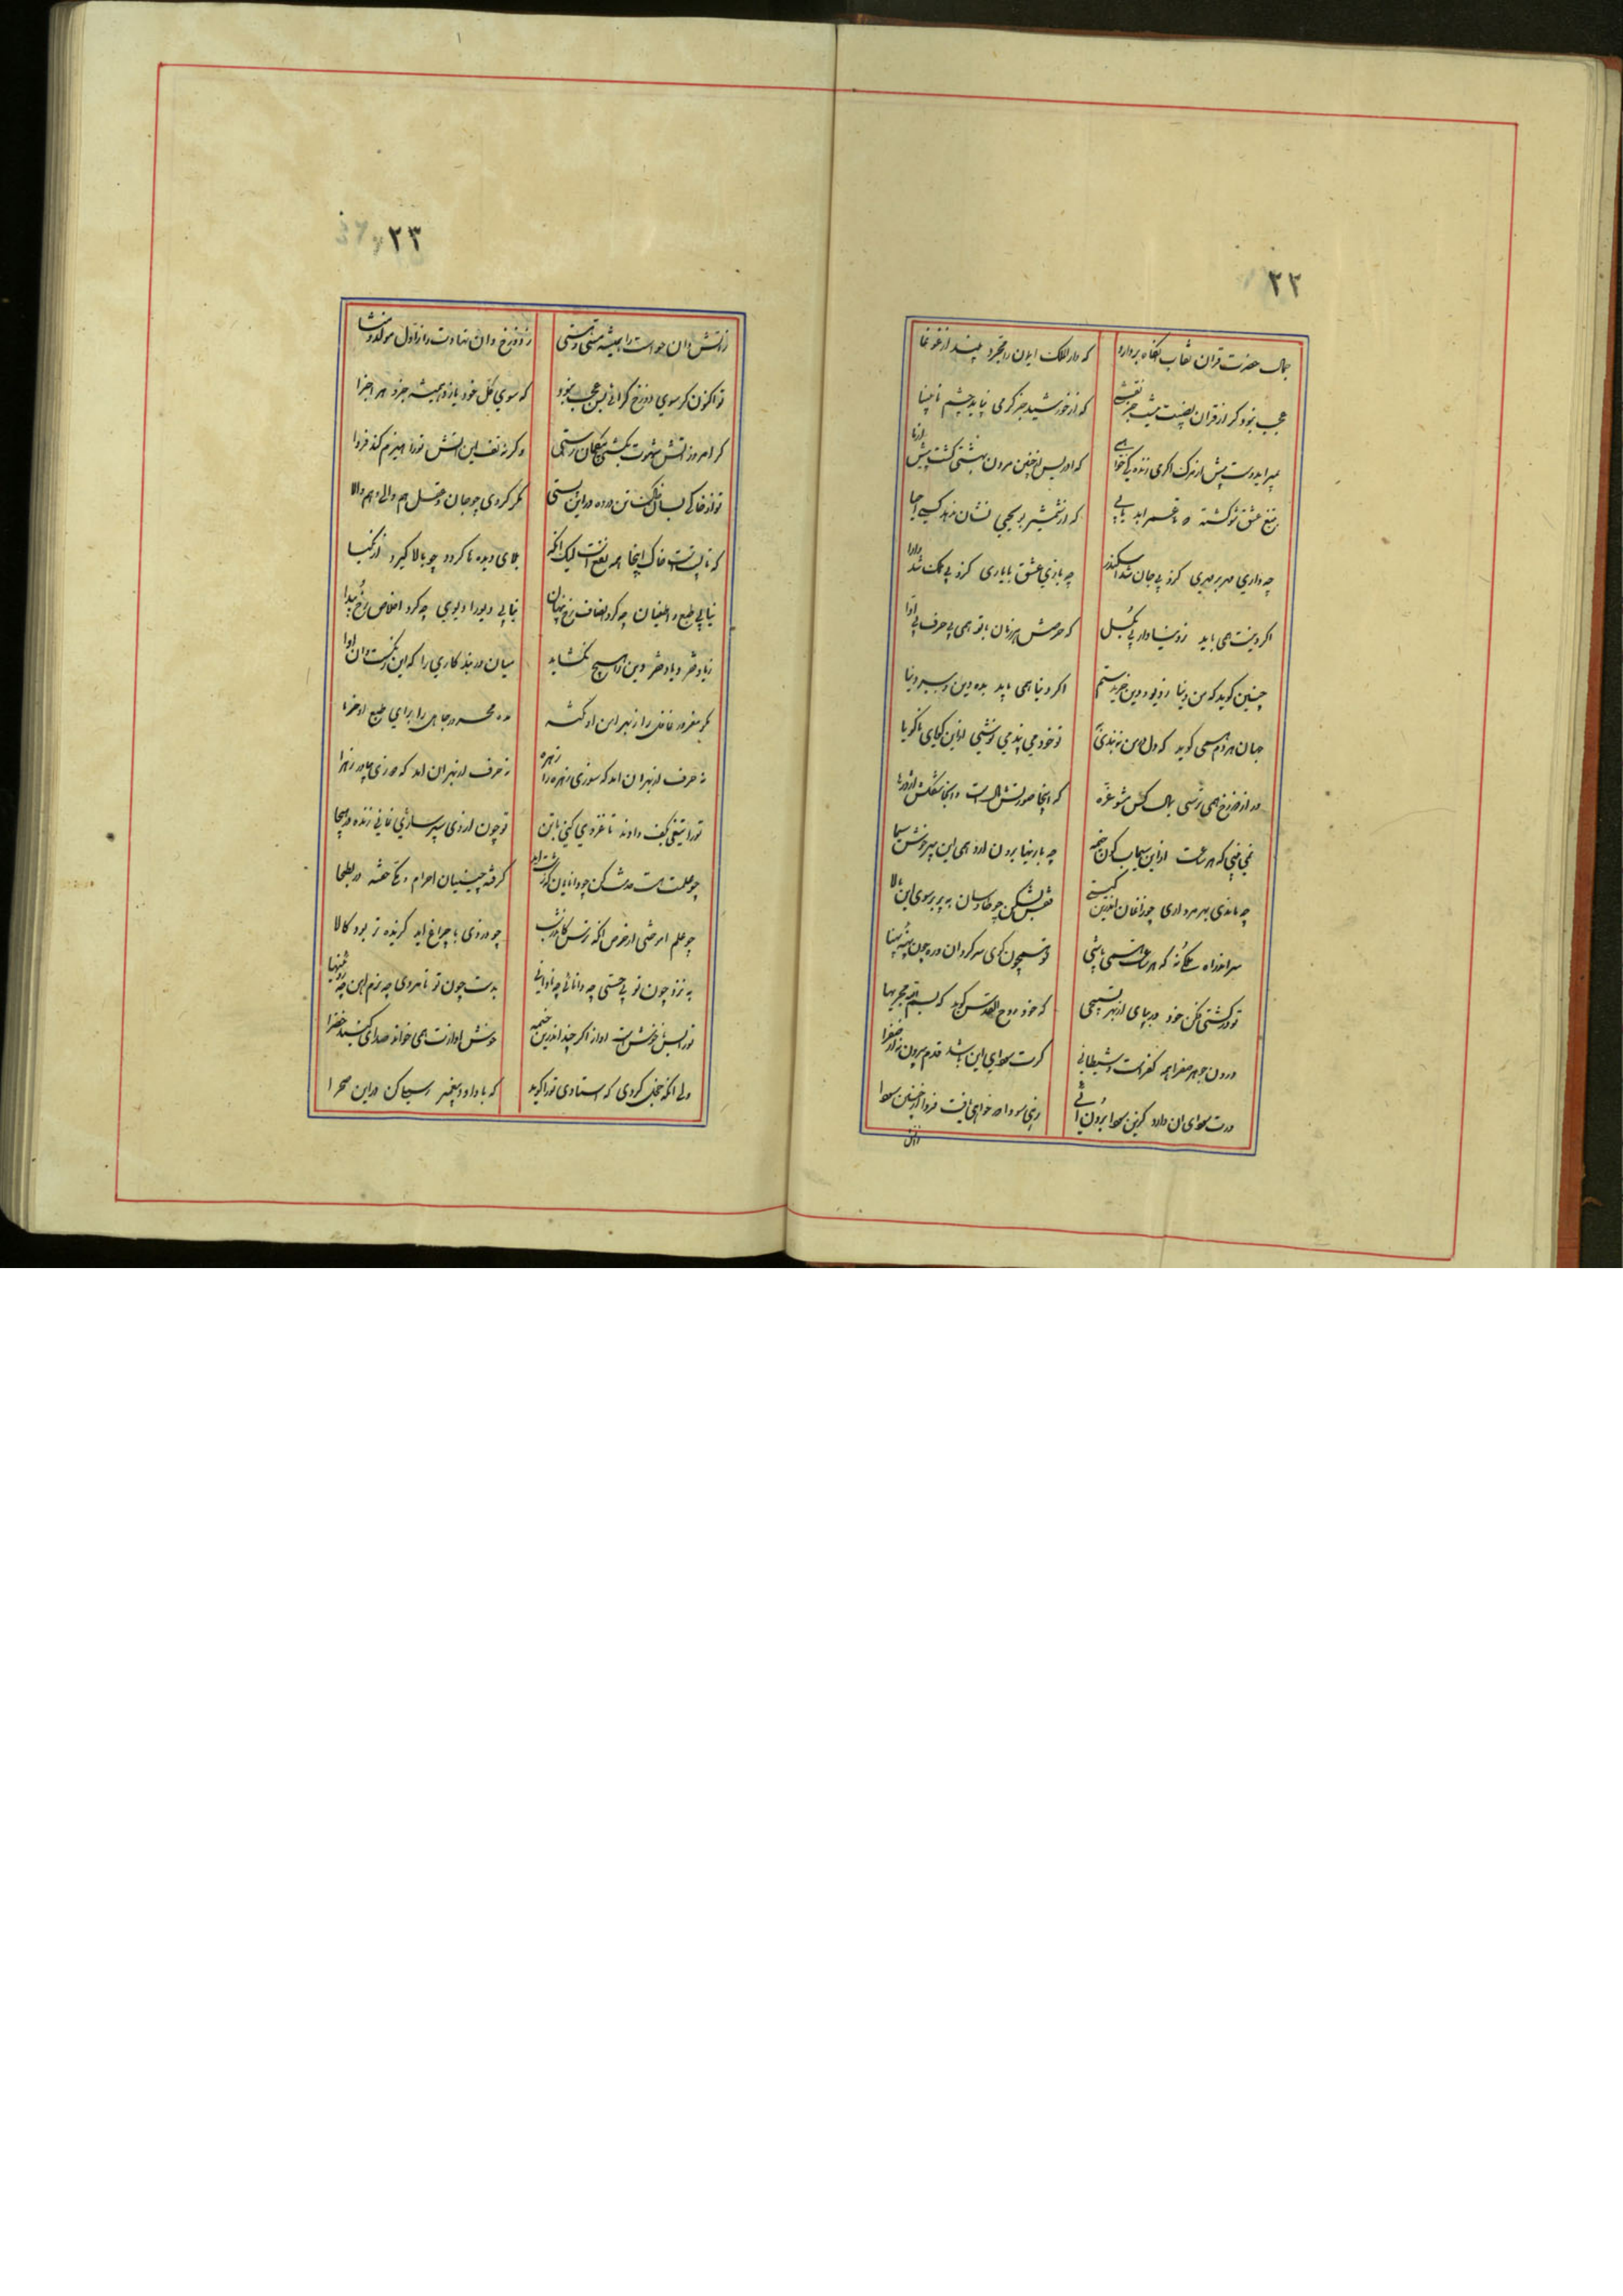 ۲۲
جمال حضرت قران نقاب انگاه بردارد که دار الملک ایمان را مجرد بیند از غوغا
عجب نبود کر از قران نصیبت نیست جز نقشی که از خورشید جز کرمی نیابد چشم نابینا
بمیر ایدوست پیش از مرک اکر می زندکی خواهی که ادریس از چنین مردن بهشتی کشت پیش از ما
بتیغ عشق شو کشته که تا عمر ابد یابی که از شمشیر بو یحیی نشان ندهد کسی احیا
چه داری مهر بد مهری کزو بی جان شد اسکندر چه بازی عشق با یاری کزو بی ملک شد دارا
اکر دینت همی باید ز دنیا دار پی بکسل که حرصش هر زمان با تو همی بی حرف بی اوا
چنین کوید که من دنیا ز دیو و دین خریدستم اکر دنیا همی باید بده دین و ببر دنیا
جهان هر دم همی کوید که دل در من نبندی به تو خود می پند می ننوشی از این کویای ناکویا
در از دوزخ همی ترسی بمال کس مشو غره که اینجا صورتش مالست و انجا شکلش اژدرها
نمی بینی که هر ساعت ازین سیماب کون خیمه چه بازیها برون ارد همی این پیر خوش سیما
چه ماندی بهر مرداری چو زاغان اندرین پستی قفس بشکن چو طاوسان به پر بر سوی این بالا
تو در کشتی فکن خود را مپای از بهر تسبیحی که خود روح القدس کوید که بسم الله مجریها
درون جوهر صفرا همه کفرست و شیطانی کرت سودای این باشد قدم بیرون نه از صفرا
درت سودای ان دارد کزین سودا برون ائی زهی سودا که خواهی یافت فردا از چنین سودا
زاتش
۲۳
زاتش دان حواست را همیشه مستی و هستی ز دوزخ دان نهادت را ز اول مولد و منشا
تو اکنون کر سوی دوزخ کرائی بس عجب نبود که سوی کل خود یازد همیشه جزو هر اجزا
کر امروز اتش شهوت بکشتی بیکمان رستی و کر نه تف این اتش تو را هیزم کند فردا
تو از خاکی بسان خاک تن در ده در این پستی مکر کردی چو جان و عقل هم والی و هم والا
که تا پستست خاک اینجا همه نفعست لیک انکه بلای دیده ها کردد چو بالا کیرد از نکبا
نیابی طبع و طغیان چه کرد انصاف رخ پنهان نیابی دیو را دیوی چه کرد اخلاص رخ پیدا
ز باد فقر و باد فقر دین را هیچ نکشاید میان در بند کاری را که این رنکست و ان اوا
مکو مغرور غافل را ز بهر امن او نکته مده محرور جاهل را برای طبع او خرما
نه حرف از بهر ان امد که سوزی زهره زهرا نه حرف از بهر ان امد که دزدی چادر زهرا
تو را تیغی بکف دادند تا غزوی کنی با تن تو چون از وی سپر سازی نمانی زنده در هیجا
چو علمت هست خدمت کن چو دانایان که زشت اید کرفته چینیان احرام و مکی خفته در بطحا
چو علم اموختی از حرص انکه ترس کاندر شب چو دزدی با چراغ اید کزیده تر برد کالا
به نزد چون تو بی حسی چه دانائی چه نادانی بدست چون تو نامردی چه نرم اهن چه روهینا
تو را بس ناخوش است اواز اکر چند اندرین خیمه خوش اوازت همی خواند صدای کنبد خضرا
ولی انکه خجل کردی که استادی تو را کوید که با داود پیغمبر رسیلی کن در این صحرا